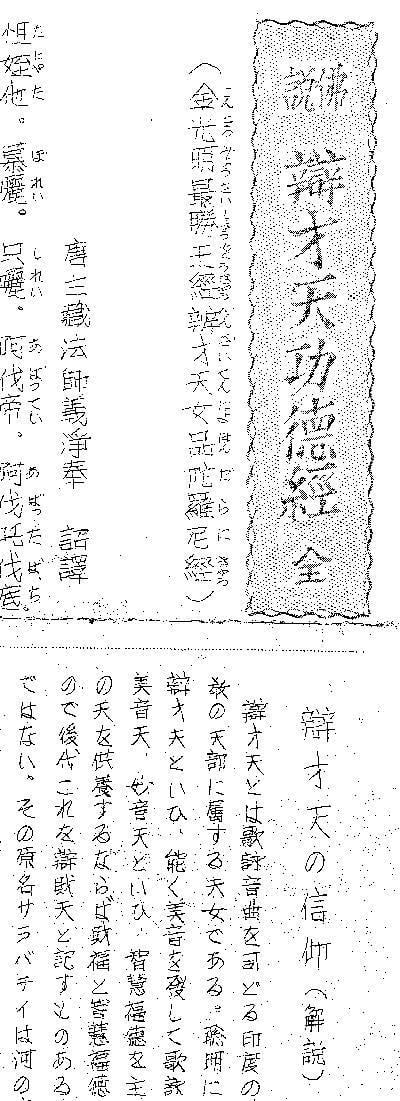 佛説 辯才天功德經 全
(金光明最勝王經辨才天女品陀羅尼經)
唐三藏法師義淨奉 詔譯
怛姪他。慕曬。只曬。阿伐帝。阿伐吒伐底。
辯才天の信仰(解説)
辯才天とは歌詠音曲を司どる印度の
教の天部に属する天女である。聰明に
辯才天といひ、能く美音を發して歌詠
美音天、妙音天といひ、智慧福德を主
の天を供養するならば財福と智慧福德
ので後代これを辯財天と記すものある
ではない。その原名サラバテイは河の